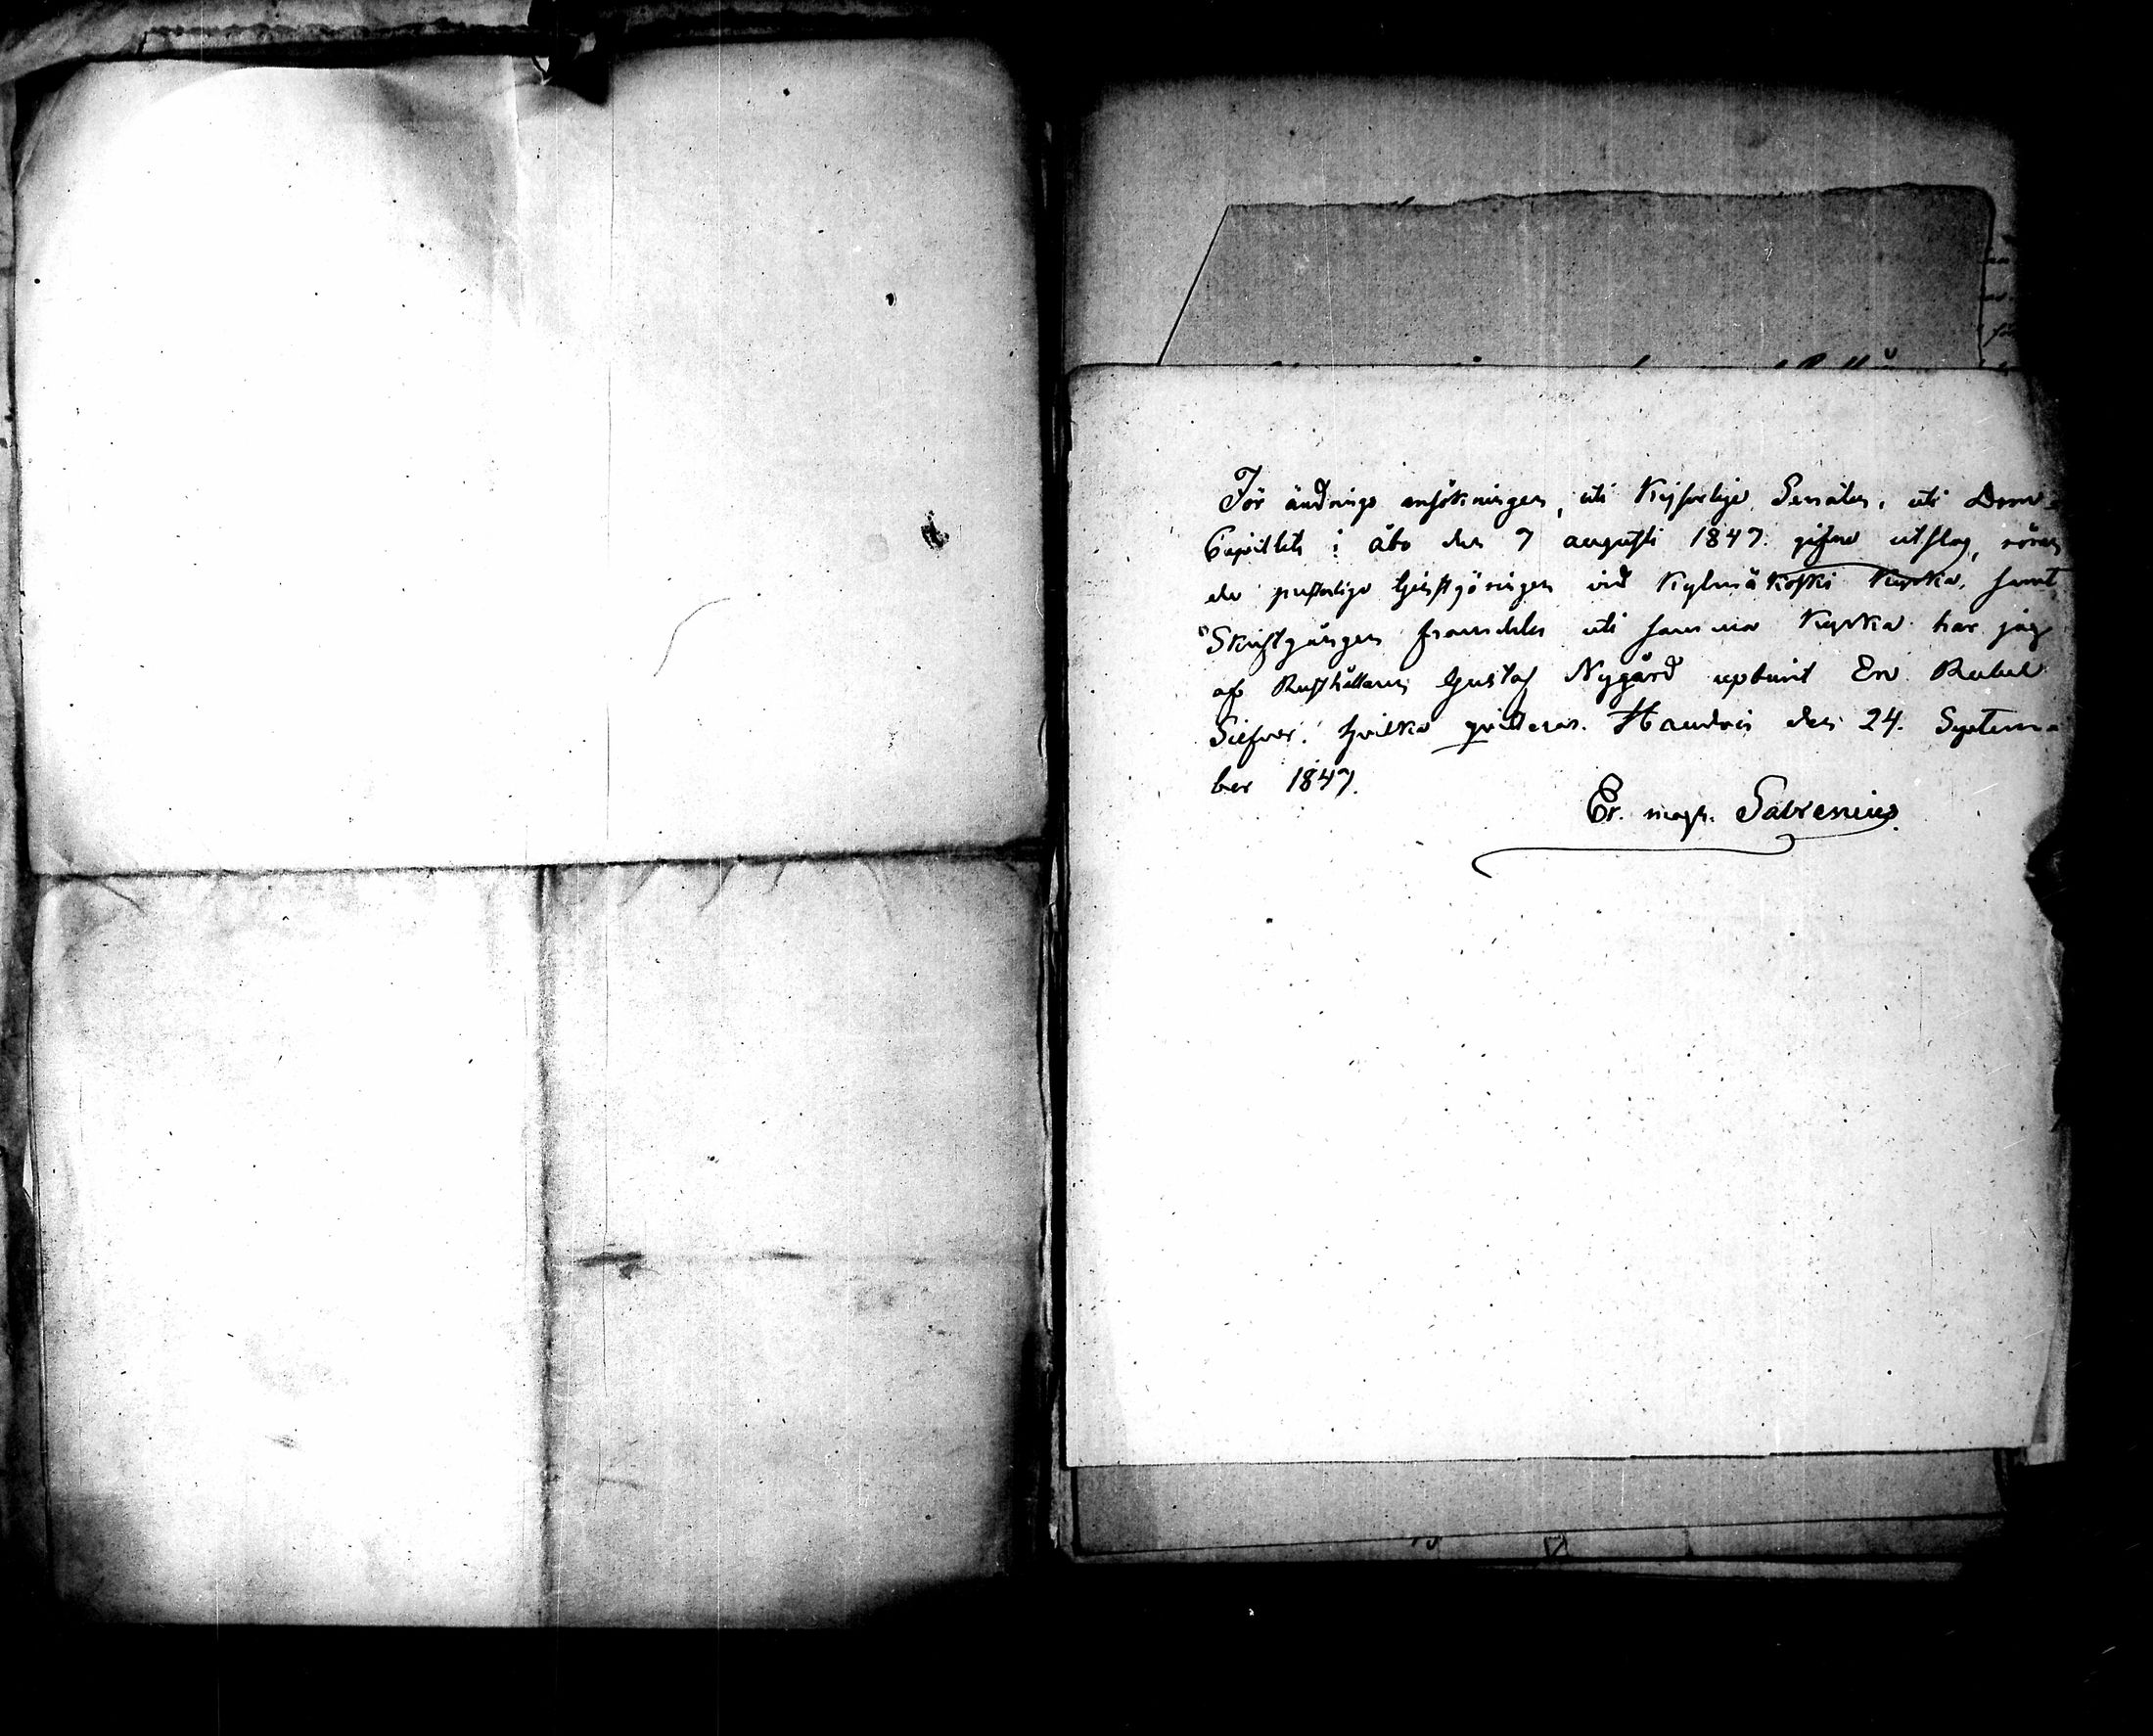 För ändrings ansökningen, uti Kejserlige Senaten, uti Dom-
Capitlets i Åbo den 7 augusti 1847. gifne utslag, röran
de presterlige tjenstgöringen vid Kylmäkoski Kyrka, samt
Skriftgången framdeles uti samma Kyrka har jag
af Rusthållaren Gustaf Nygård upburit En Rubel
Silfver, hvilka qvitteras. Handois den 24. Septem-
ber 1847.
Er. magn. Sabrenius.